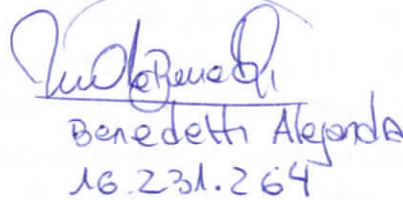 Benedetti Alejandra
16.231.264